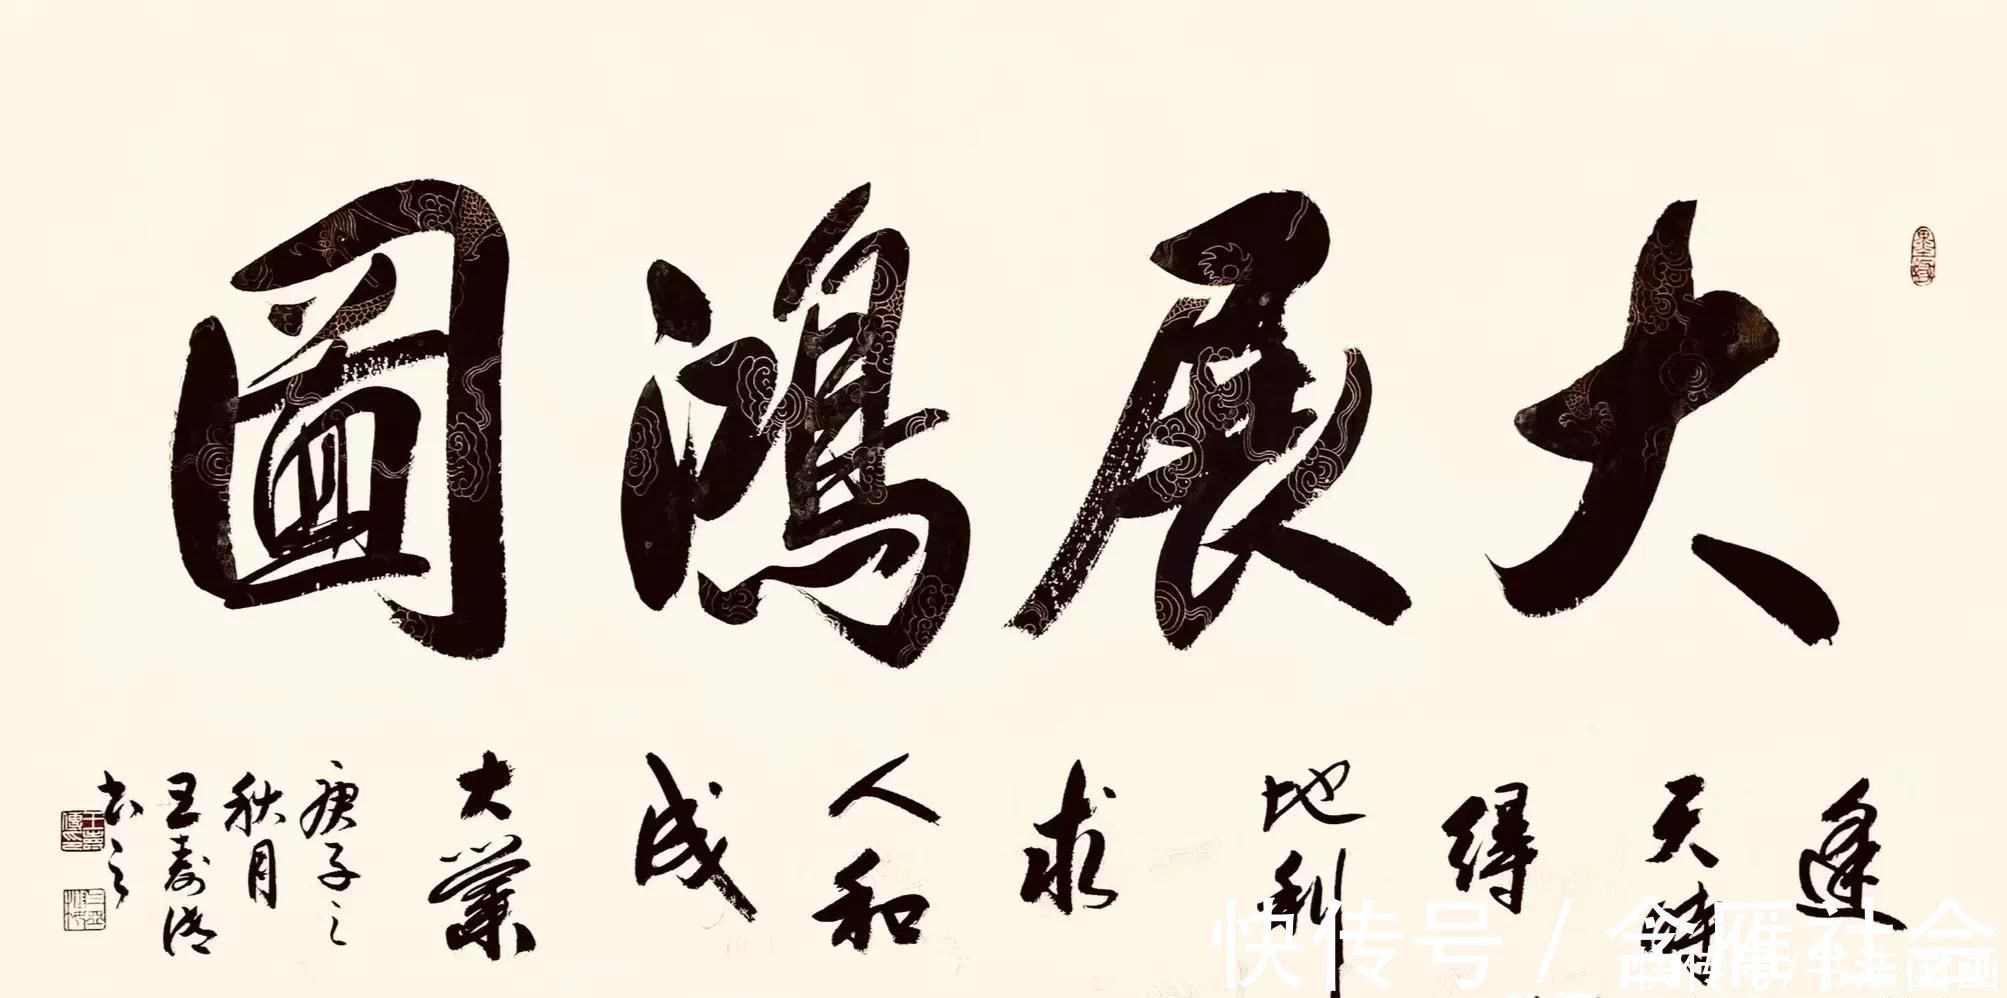 大展鴻圖
逢
天時
得
地利
求
人和
成
大業
庚子之
秋月
王寿
书之
快传号 / 含雁社会